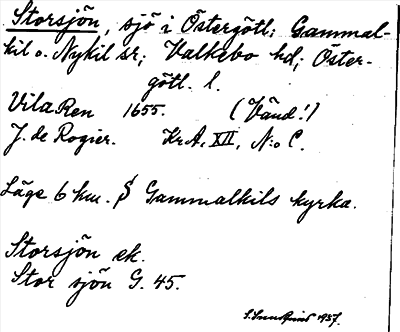 Storsjön, sjö i Östergötl; Gammal-
kil o. Nykil sr; Valkebo hd; Öster-
götl. l.
Vila Ren 1655. (Vänd!)
J. de Rogier. KrA, XII, N:o C.
Läge 6 km. S Gammalkils kyrka.
Storsjön ek.
Stor sjön G. 45.
1937.